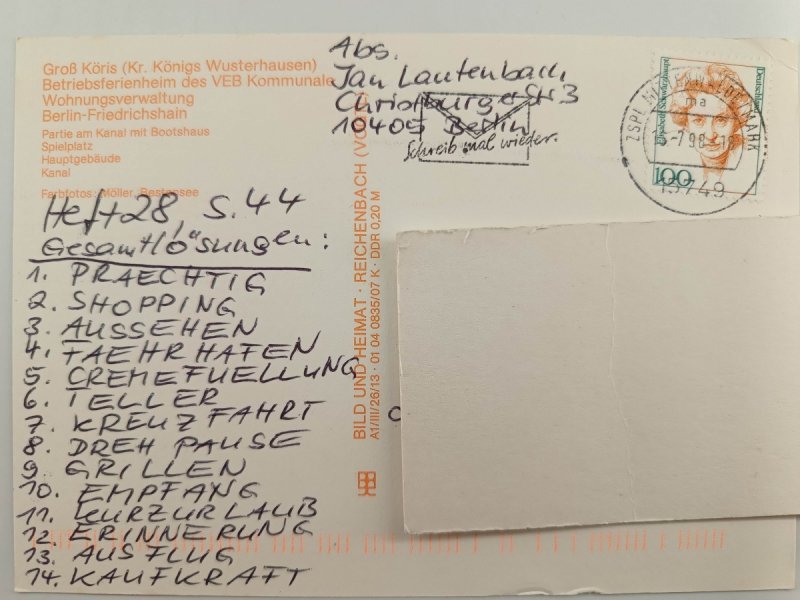 Groß Köris (Kr. Königs Wusterhausen)
Betriebsferienheim des VEB Kommunale
Wohnungsverwaltung
Berlin-Friedrichshain
Partie am Kanal mit Bootshaus
Spielplatz
Hauptgebäude
Kanal
Farbfotos: Möller, Bestensee
Abs.
Jan Lautenbach,
Christburger Str 3
10405 Berlin
Schreib mal wieder.
Deutschland
100
15749
Heft 28, S. 44
Gesamtlösungen:
1. PRAECHTIG
2. SHOPPING
3. AUSSEHEN
4. FAEHRHAFEN
5. CREMEFUELLUNG
6. TELLER
7. KREUZFAHRT
8. DREHPAUSE
9. GRILLEN
10. EMPFANG
11. KURZURLAUB
12. ERINNERUNG
13. AUSFLUG
14. KAUFKRAFT
BILD UND HEIMAT · REICHENBACH (VOGTL)
A1/III/26/13 · 01 04 0835/07 K · DDR 0,20 M